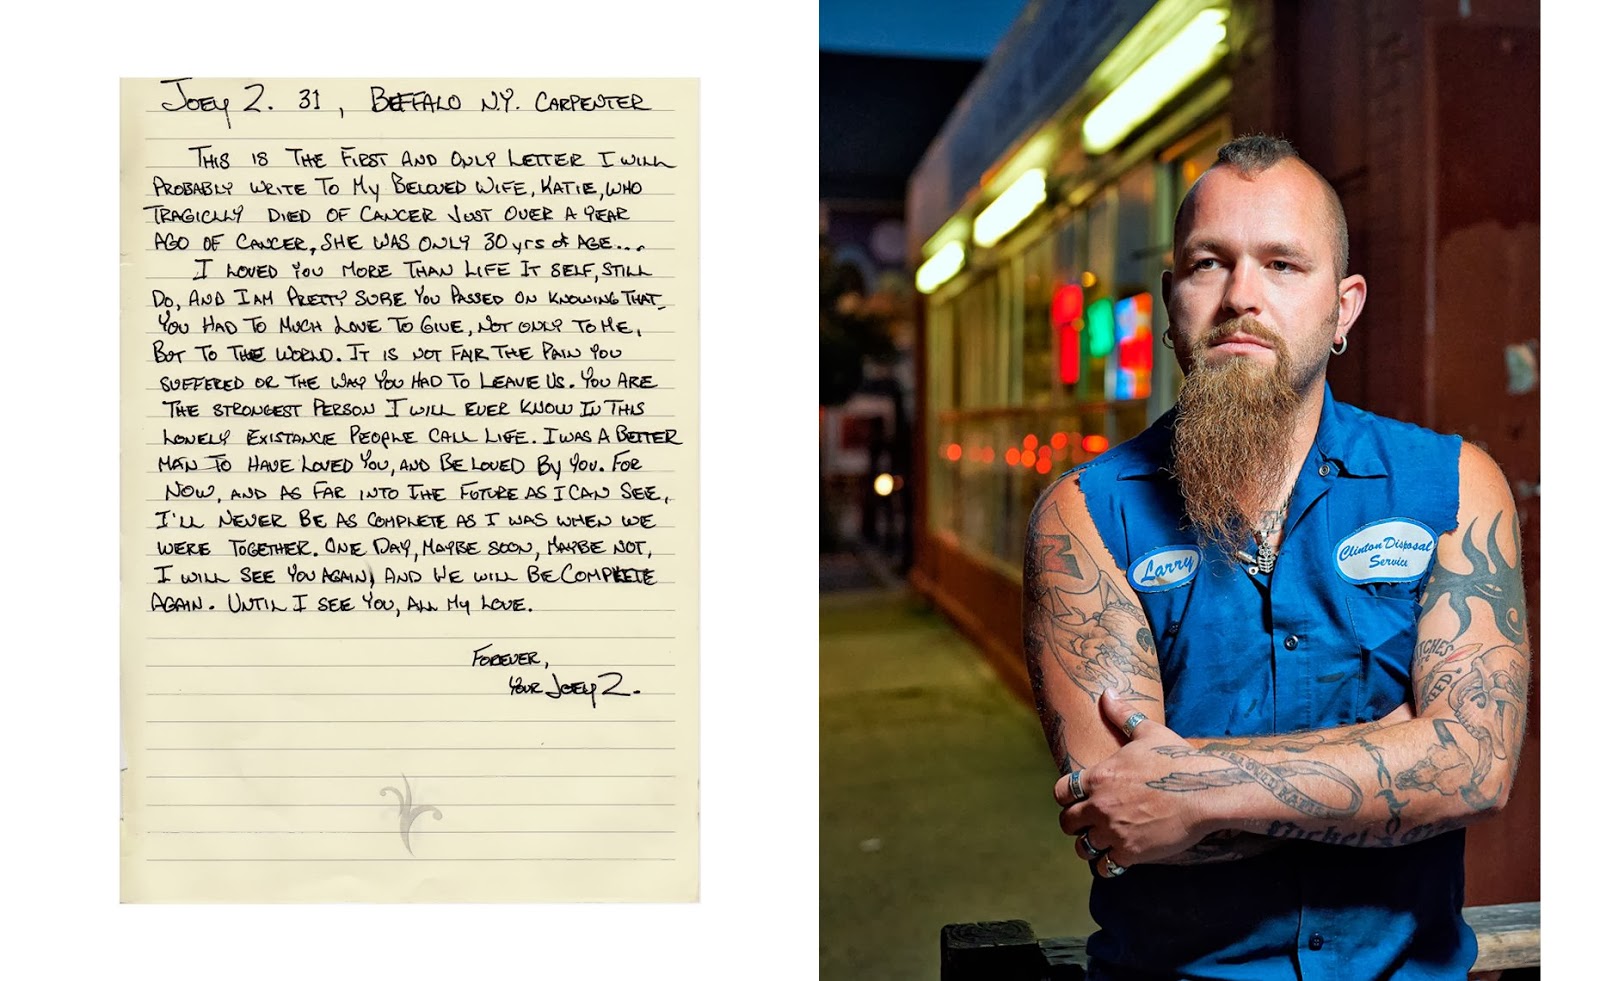 Joey Z. 31, BUFFALO N.Y. CARPENTER
THIS IS THE FIRST AND ONLY LETTER I WILL
PROBABLY WRITE TO MY BELOVED WIFE, KATIE, WHO
TRAGICALLY DIED OF CANCER JUST OVER A YEAR
AGO OF CANCER, SHE WAS ONLY 30 yrs of AGE...
I LOVED YOU MORE THAN LIFE IT SELF, STILL
DO, AND I AM PRETTY SURE YOU PASSED ON KNOWING THAT.
YOU HAD TO MUCH LOVE TO GIVE, NOT ONLY TO ME,
BUT TO THE WORLD. IT IS NOT FAIR THE PAIN YOU
SUFFERED OR THE WAY YOU HAD TO LEAVE US. YOU ARE
THE STRONGEST PERSON I WILL EVER KNOW IN THIS
LONELY EXISTANCE PEOPLE CALL LIFE. I WAS A BETTER
MAN TO HAVE LOVED YOU, AND BE LOVED BY YOU. FOR
NOW, AND AS FAR INTO THE FUTURE AS I CAN SEE,
I'LL NEVER BE AS COMPLETE AS I WAS WHEN WE
WERE TOGETHER. ONE DAY, MAYBE SOON, MAYBE NOT,
I WILL SEE YOU AGAIN, AND WE WILL BE COMPLETE
AGAIN. UNTIL I SEE YOU, ALL MY LOVE.
FOREVER,
YOUR JOEY Z.
Larry
Clinton Disposal
Service